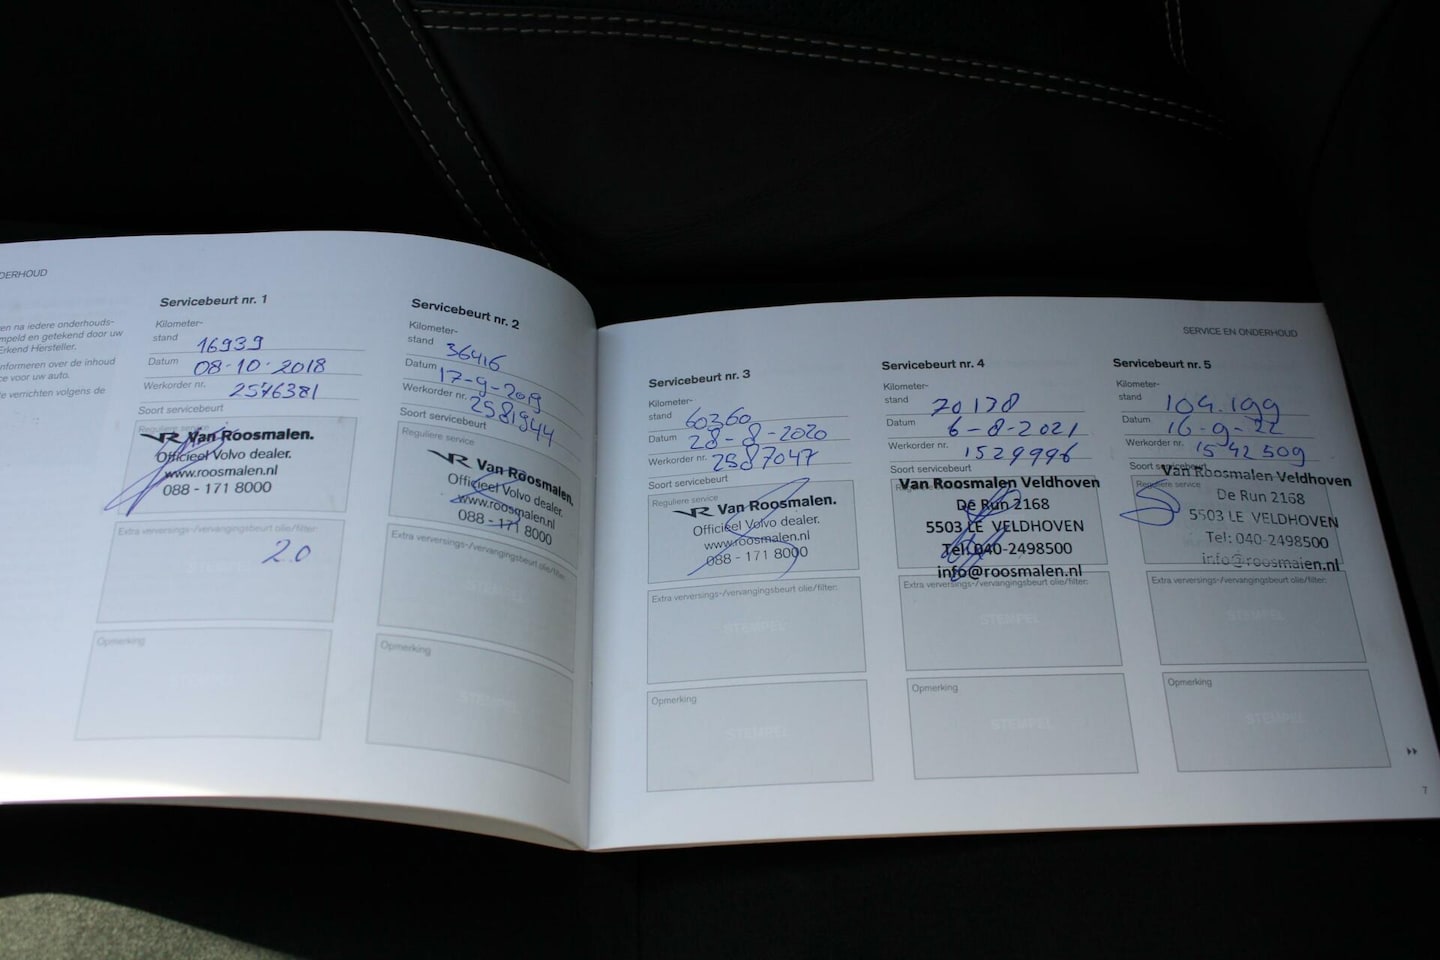 DERHOUD
en na iedere onderhouds-
mpeld en getekend door uw
Erkend Hersteller.
nformeren over de inhoud
ce voor uw auto.
te verrichten volgens de
Servicebeurt nr. 1
Kilometer-
stand 16939
Datum 08-10-2018
Werkorder nr. 2576381
Soort servicebeurt
Reguliere service
VR Van Roosmalen.
Officieel Volvo dealer.
www.roosmalen.nl
088 - 171 8000
Extra verversings-/vervangingsbeurt olie/filter:
2.0
STEMPEL
Opmerking
Servicebeurt nr. 2
Kilometer-
stand 36416
Datum 17-9-2019
Werkorder nr. 2581944
Soort servicebeurt
Reguliere service
VR Van Roosmalen.
Officieel Volvo dealer.
www.roosmalen.nl
088 - 171 8000
Extra verversings-/vervangingsbeurt olie/filter:
Opmerking
SERVICE EN ONDERHOUD
Servicebeurt nr. 3
Kilometer-
stand 60360
Datum 28-8-2020
Werkorder nr. 2587047
Soort servicebeurt
Reguliere service
VR Van Roosmalen.
Officieel Volvo dealer.
www.roosmalen.nl
088 - 171 8000
Extra verversings-/vervangingsbeurt olie/filter:
STEMPEL
Opmerking
STEMPEL
Servicebeurt nr. 4
Kilometer-
stand 70178
Datum 6-8-2021
Werkorder nr. 1529996
Soort servicebeurt
Van Roosmalen Veldhoven
De Run 2168
5503 LE VELDHOVEN
Tel: 040-2498500
info@roosmalen.nl
Extra verversings-/vervangingsbeurt olie/filter:
STEMPEL
Opmerking
STEMPEL
Servicebeurt nr. 5
Kilometer-
stand 104.199
Datum 16-9-22
Werkorder nr. 1542509
Soort servicebeurt
Reguliere service
Van Roosmalen Veldhoven
De Run 2168
5503 LE VELDHOVEN
Tel: 040-2498500
info@roosmalen.nl
Extra verversings-/vervangingsbeurt olie/filter:
STEMPEL
Opmerking
STEMPEL
7